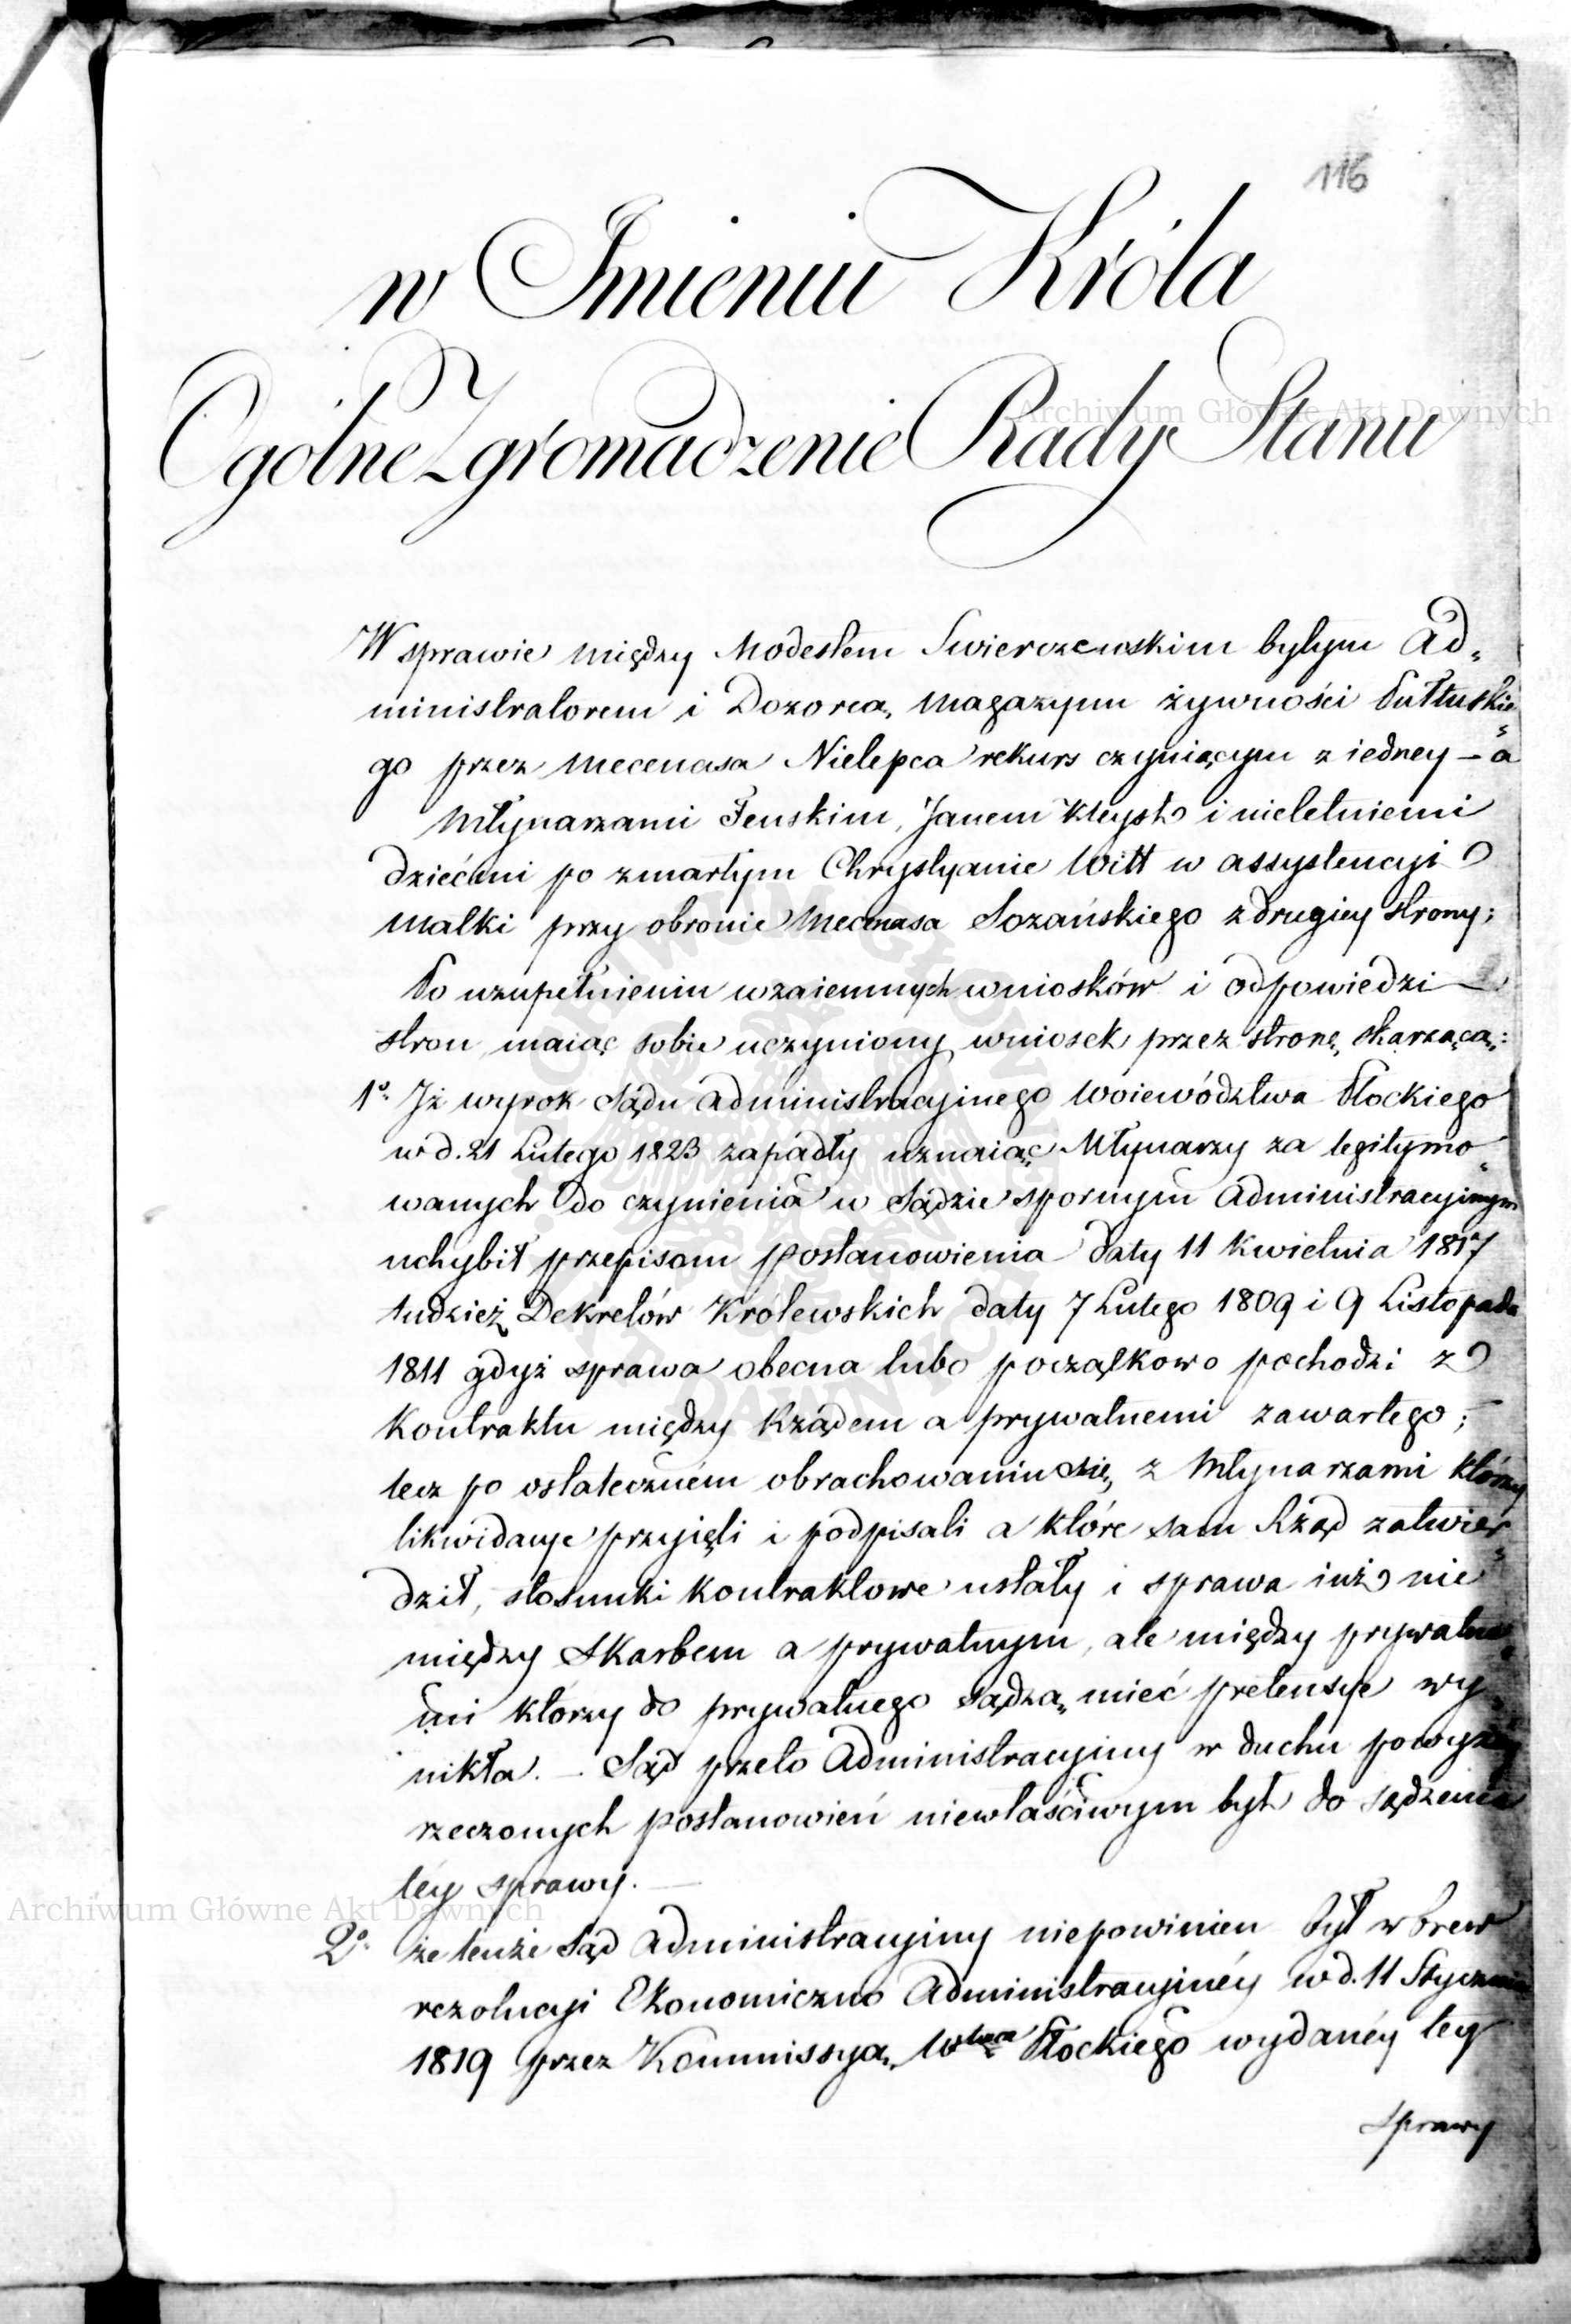 116
w Imieniu Króla
Ogólne Zgromadzenie Rady Stanu
W sprawie między Modestem Swierczewskim byłym Ad„
ministratorem i Dozorcą magazynu żywności Pułtuskie„
go przez Mecenasa Nielepca rekurs czyniącym z iedney – a
Młynarzami Fenskim, Janem i nieletniemi
dziećmi po zmarłym Chrystyanie Witt w assystencyi
Matki przy obronie Mecenasa Sozańskiego z drugiey strony;
Po uzupełnieniu wzaiemnych wniosków i odpowiedzi –
stron maiąc sobie uczyniony wniosek przez stronę skarżącą:
1º Iż wyrok Sądu Administracyinego Woiewództwa Płockiego
w d. 21 Lutego 1823 zapadły uznaiąc Młynarzy za legitymo„
wanych do czynienia w Sądzie spornym Administracyinym
uchybił przepisom postanowienia daty 11 Kwietnia 1817
tudzież Dekretów Królewskich daty 7 Lutego 1809 i 9 Listopada
1811 gdyż sprawa obecna lubo początkowo pochodzi z
Kontraktu między Rządem a prywatnemi zawartego;
lecz po ostateczném obrachowaniu się z Młynarzami którzy
likwidacye przyięli i podpisali a które sam Rząd zatwier„
dził, stosunki kontraktowe ustały i sprawa iuż nie
między Skarbem a prywatnym, ale między prywatne„
mi którzy do prywatnego sądzą mieć pretensye wy„
nikła. – Sąd przeto Administracyiny w duchu powyżéy
rzeczonych postanowień niewłaściwym był do sądzenia
téy sprawy. –
2º że tenże Sąd Administracyiny niepowinien był wbrew
rezolucyi Ekonomiczno Administracyinéy w d. 11 Stycznia
1819 przez Kommissyą Wtwa Płockiego wydanéy tey
sprawy
Archiwum Główne Akt Dawnych
Archiwum Główne Akt Dawnych